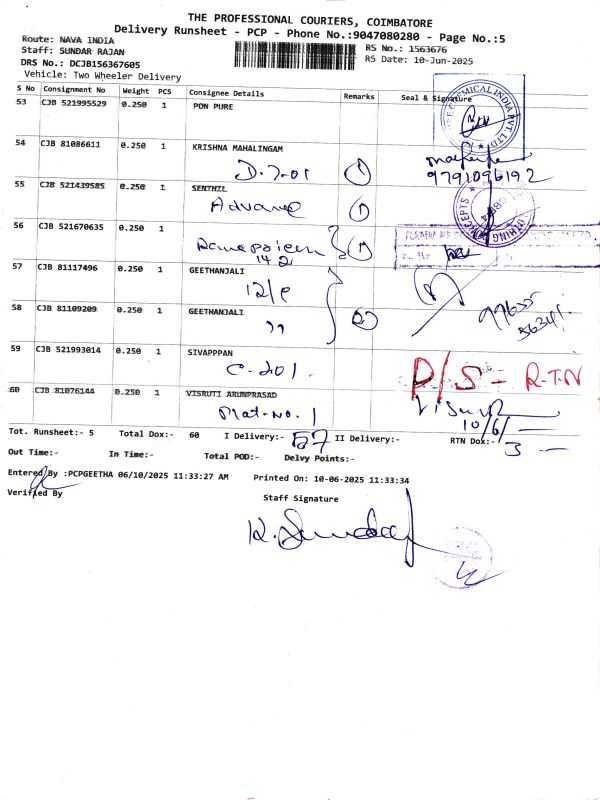 THE PROFESSIONAL COURIERS, COIMBATORE
Delivery Runsheet - PCP - Phone No.:9047080280 - Page No.:5
Route: NAVA INDIA
Staff: SUNDAR RAJAN
RS No.: 1563676
DRS No.: DCJB156367605
RS Date: 10-Jun-2025
Vehicle: Two Wheeler Delivery
S No Consignment No Weight PCS Consignee Details Remarks Seal & Signature
53 CJB 521995529 0.250 1 PON PURE
CHEMICAL INDIA PVT. LTD
54 CJB 81086611 0.250 1 KRISHNA MAHALINGAM
D-7-01 1
9791096192
55 CJB 521439585 0.250 1 SENTHIL
Advance 1
56 CJB 521670635 0.250 1
142 1
57 CJB 81117496 0.250 1 GEETHANJALI
12/e
58 CJB 81109209 0.250 1 GEETHANJALI
" 2
59 CJB 521993014 0.250 1 SIVAPPPAN
C-201. P/S - R.T.N
60 CJB 81076144 0.250 1 VISRUTI ARUNPRASAD
Plat-No. 1
10/6/
Tot. Runsheet:- 5 Total Dox:- 60 I Delivery:- 57 II Delivery:- RTN Dox:- 3
Out Time:- In Time:- Total POD:- Delvy Points:-
Entered By :PCPGEETHA 06/10/2025 11:33:27 AM Printed On: 10-06-2025 11:33:34
Verified By
Staff Signature